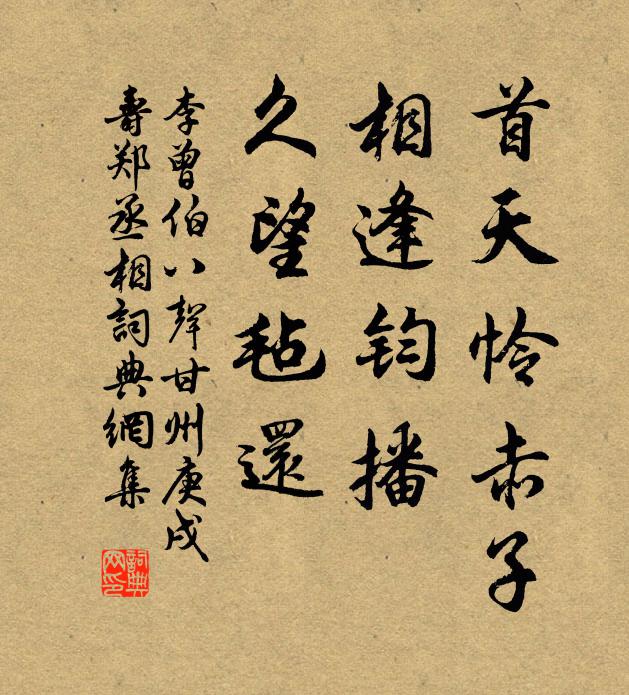 首天怜赤子
相逢鈞播
久望毡還
李曾伯八聲甘州庚戌
壽郑丞相詞典網集
詞典网印